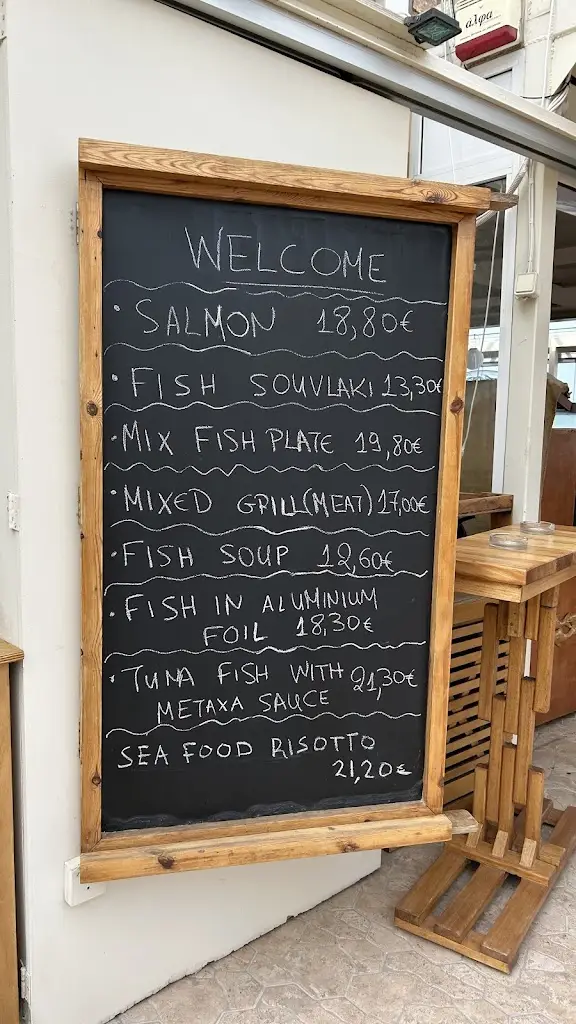 άλφα
WELCOME
· SALMON 18,80€
· FISH SOUVLAKI 13,30€
· MIX FISH PLATE 19,80€
· MIXED GRILL(MEAT) 17,00€
· FISH SOUP 12,60€
· FISH IN ALUMINIUM
FOIL 18,30€
· TUNA FISH WITH 21,30€
METAXA SAUCE
SEA FOOD RISOTTO
21,20€